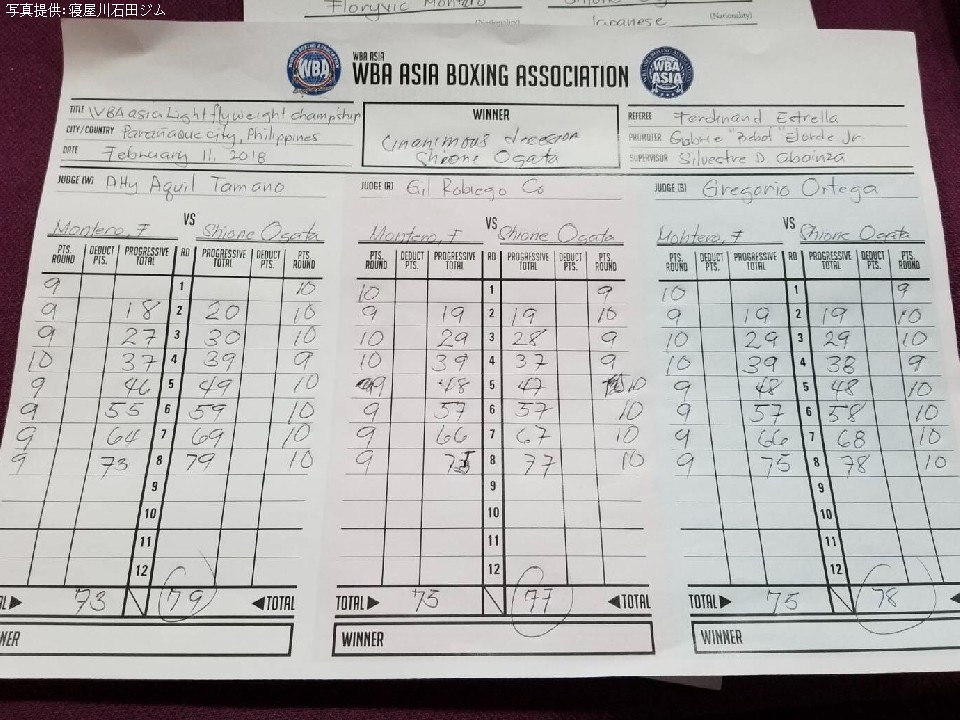 写真提供：寝屋川石田ジム
Floryvic Montero
(Nationality)
Japanese
(Nationality)
WBA
WBA ASIA
WBA ASIA BOXING ASSOCIATION
WBA ASIA
TITLE WBA asia Light flyweight champship
CITY/COUNTRY Paranaque city, Philippines
DATE February 11, 2018
WINNER
Unanimous decision
Shione Ogata
REFEREE Ferdinand Estrella
PROMOTER Gabriel "Bebot" Elorde Jr.
SUPERVISOR Silvestre D Abainza
JUDGE (W) Atty Aquil Tamano
Montero, F VS Shione Ogata
PTS. ROUND DEDUCT PTS. PROGRESSIVE TOTAL RD PROGRESSIVE TOTAL DEDUCT PTS. PTS. ROUND
9 1 10
9 18 2 20 10
9 27 3 30 10
10 37 4 39 9
9 46 5 49 10
9 55 6 59 10
9 64 7 69 10
9 73 8 79 10
9
10
11
12
73 79 TOTAL
JUDGE (R) Gil Robiego Co
Montero, F VS Shione Ogata
PTS. ROUND DEDUCT PTS. PROGRESSIVE TOTAL RD PROGRESSIVE TOTAL DEDUCT PTS. PTS. ROUND
10 1 9
9 19 2 19 10
10 29 3 28 9
10 39 4 37 9
9 48 5 47 10
9 57 6 57 10
9 66 7 67 10
9 75 8 77 10
9
10
11
12
TOTAL 75 77 TOTAL
WINNER
JUDGE (S) Gregorio Ortega
Montero, F VS Shione Ogata
PTS. ROUND DEDUCT PTS. PROGRESSIVE TOTAL RD PROGRESSIVE TOTAL DEDUCT PTS. PTS. ROUND
10 1 9
9 19 2 19 10
10 29 3 29 10
10 39 4 38 9
9 48 5 48 10
9 57 6 58 10
9 66 7 68 10
9 75 8 78 10
9
10
11
12
TOTAL 75 78
WINNER